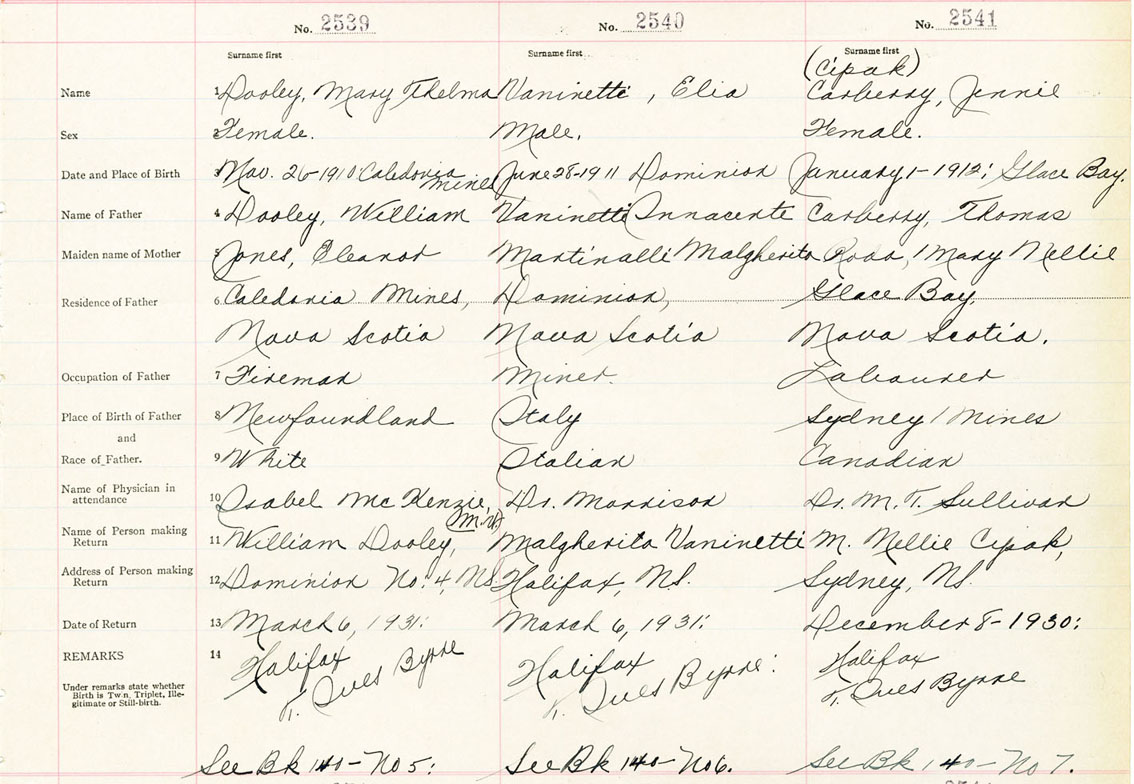 No. 2539 No. 2540 No. 2541
Surname first Surname first Surname first
(Cipak)
Name 1 Dooley, Mary Thelma Vaninetti, Elia Carberry, Jennie
Sex 2 Female. Male. Female.
Date and Place of Birth 3 Nov. 26-1910 Caledonia June 28-1911 Dominion January 1-1912: Glace Bay.
mines
Name of Father 4 Dooley, William Vaninetti Innacente Carberry, Thomas
Maiden name of Mother 5 Jones, Eleanor Martinalli Malgherita Ross, Mary Nellie
Residence of Father 6 Caledonia Mines, Dominion, Glace Bay,
Nova Scotia Nova Scotia Nova Scotia.
Occupation of Father 7 Fireman Miner. Labourer
Place of Birth of Father 8 Newfoundland Italy Sydney Mines
and
Race of Father. 9 White Italian Canadian
Name of Physician in
attendance 10 Isabel McKenzie, Dr. Morrison Dr. M. T. Sullivan
Name of Person making
Return 11 William Dooley, Malgherita Vaninetti M. Nellie Cipak,
Address of Person making
Return 12 Dominion No. 4, NS. Halifax, NS. Sydney, NS.
Date of Return 13 March 6, 1931: March 6, 1931: December 8-1930:
REMARKS 14 Halifax Halifax Halifax
T. Ives Byrne T. Ives Byrne: T. Ives Byrne
Under remarks state whether
Birth is Twin, Triplet, Ille-
gitimate or Still-birth.
See Bk 140-No 5: See Bk 140-No 6. See Bk 140-No 7.